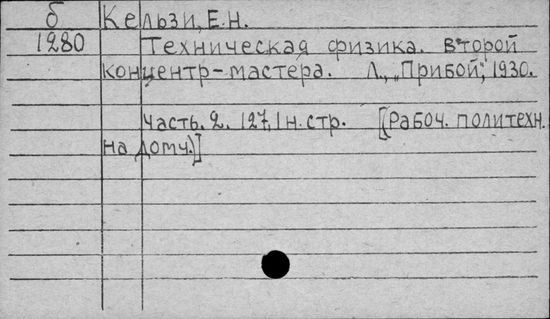 б Кельзи, Е.Н.
1280 Техническая физика. Второй
концентр-мастера. Л., „Прибой", 1930.
Часть. 2. 127, 1 н. стр. [(Рабоч. политехн.
на дому.)]